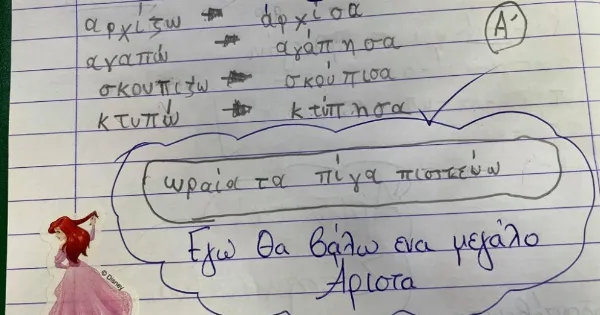 αρχίζω → άρχισα
αγαπώ → αγάπησα
σκουπίζω → σκούπισα
κτυπώ → κτύπησα
Α'
ωραία τα πίγα πιστεύω
Εγω θα βάλω ενα μεγάλο
Άριστα
© Disney